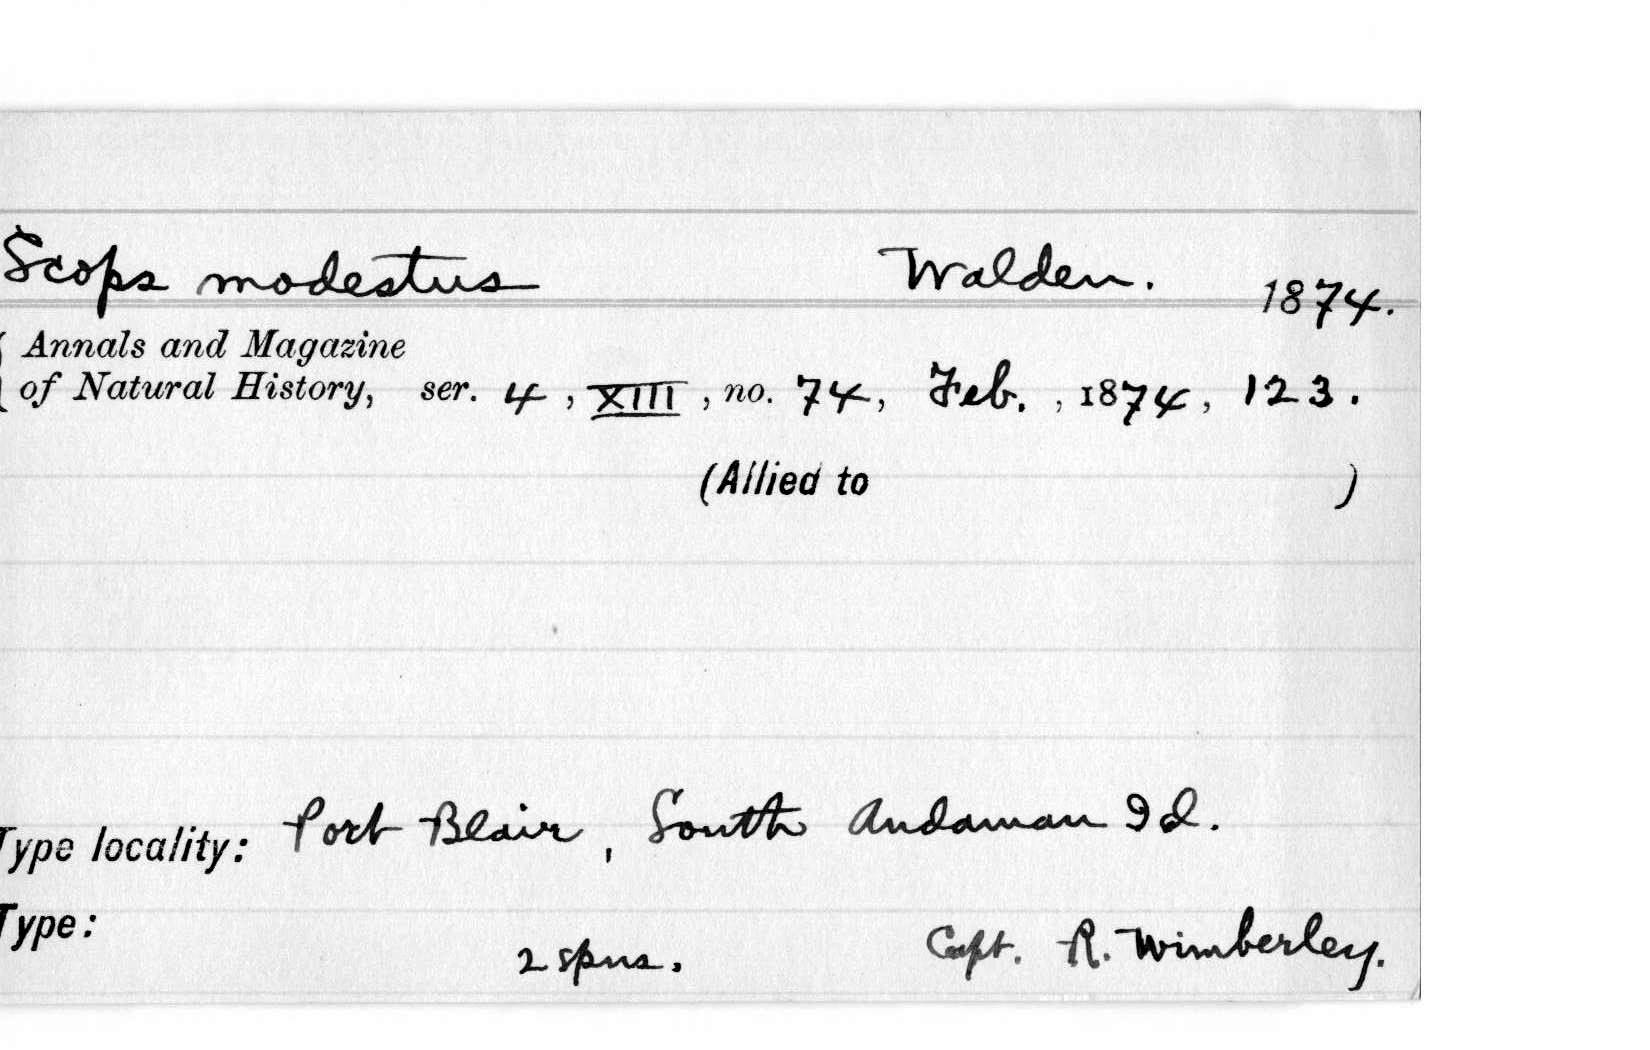 Scops modestus Walden. 1874.
Annals and Magazine
of Natural History, ser. 4, XIII, no. 74, Feb., 1874, 123.
(Allied to )
Type locality: Port Blair, South Andaman Id.
Type:
2 spns. Capt. R. Wimberley.